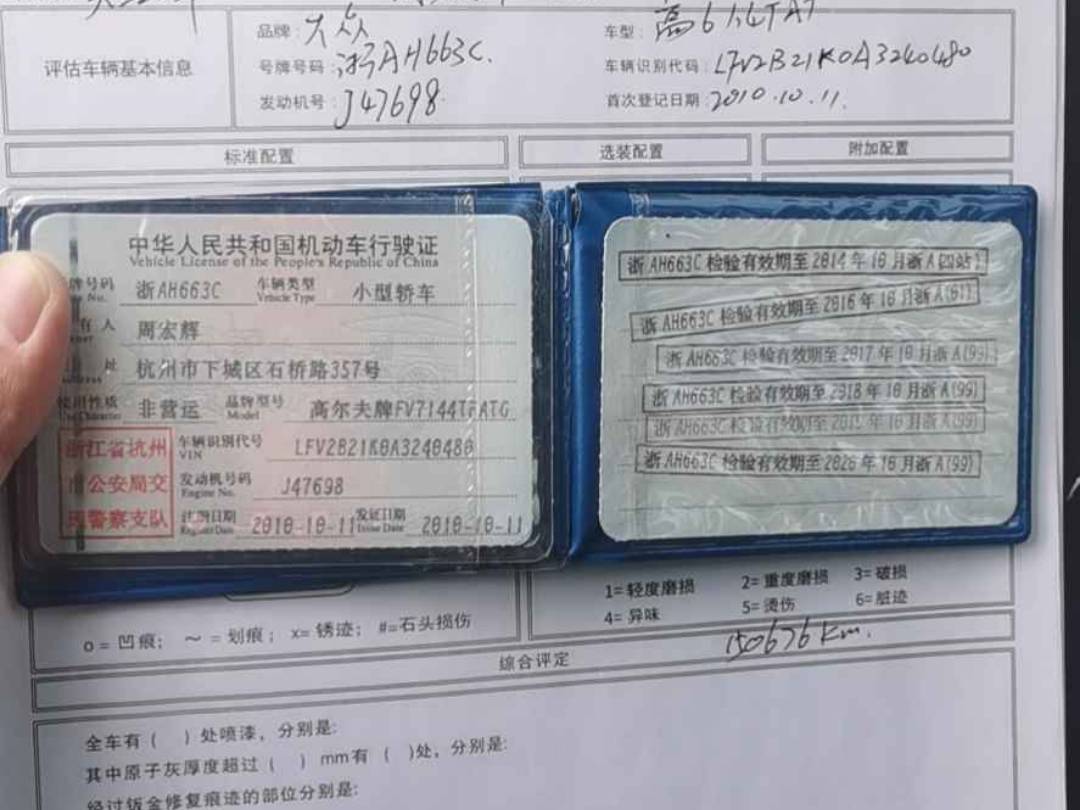 评估车辆基本信息
品牌: 大众
车型: 高6 1.4TAT
号牌号码: 浙AH663C.
车辆识别代码: LFV2B21K0A3240480
发动机号: J47698
首次登记日期: 2010.10.11.
标准配置
选装配置
附加配置
中华人民共和国机动车行驶证
Vehicle License of the People's Republic of China
牌号码 浙AH663C 车辆类型 小型轿车
No. Vehicle Type
有人 周宏辉
址 杭州市下城区石桥路357号
使用性质 非营运 品牌型号 高尔夫牌FV7144TFATG
Character Model
浙江省杭州
市公安局交
通警察支队
车辆识别代号 LFV2B21K0A3240480
VIN
发动机号码 J47698
Engine No.
注册日期 2010-10-11 发证日期 2010-10-11
Register Date Issue Date
浙AH663C 检验有效期至2014年10月浙A(四站)
浙AH663C 检验有效期至2016年10月浙A(61)
浙AH663C 检验有效期至2017年10月浙A(99)
浙AH663C 检验有效期至2018年10月浙A(99)
浙AH663C 检验有效期至2019年10月浙A(99)
浙AH663C 检验有效期至2020年10月浙A(99)
1=轻度磨损 2=重度磨损 3=破损
4=异味 5=烫伤 6=脏迹
o=凹痕; ～=划痕; x=锈迹; #=石头损伤
150676 Km.
综合评定
全车有( )处喷漆，分别是:
其中原子灰厚度超过( )mm有( )处，分别是:
经过钣金修复痕迹的部位分别是: